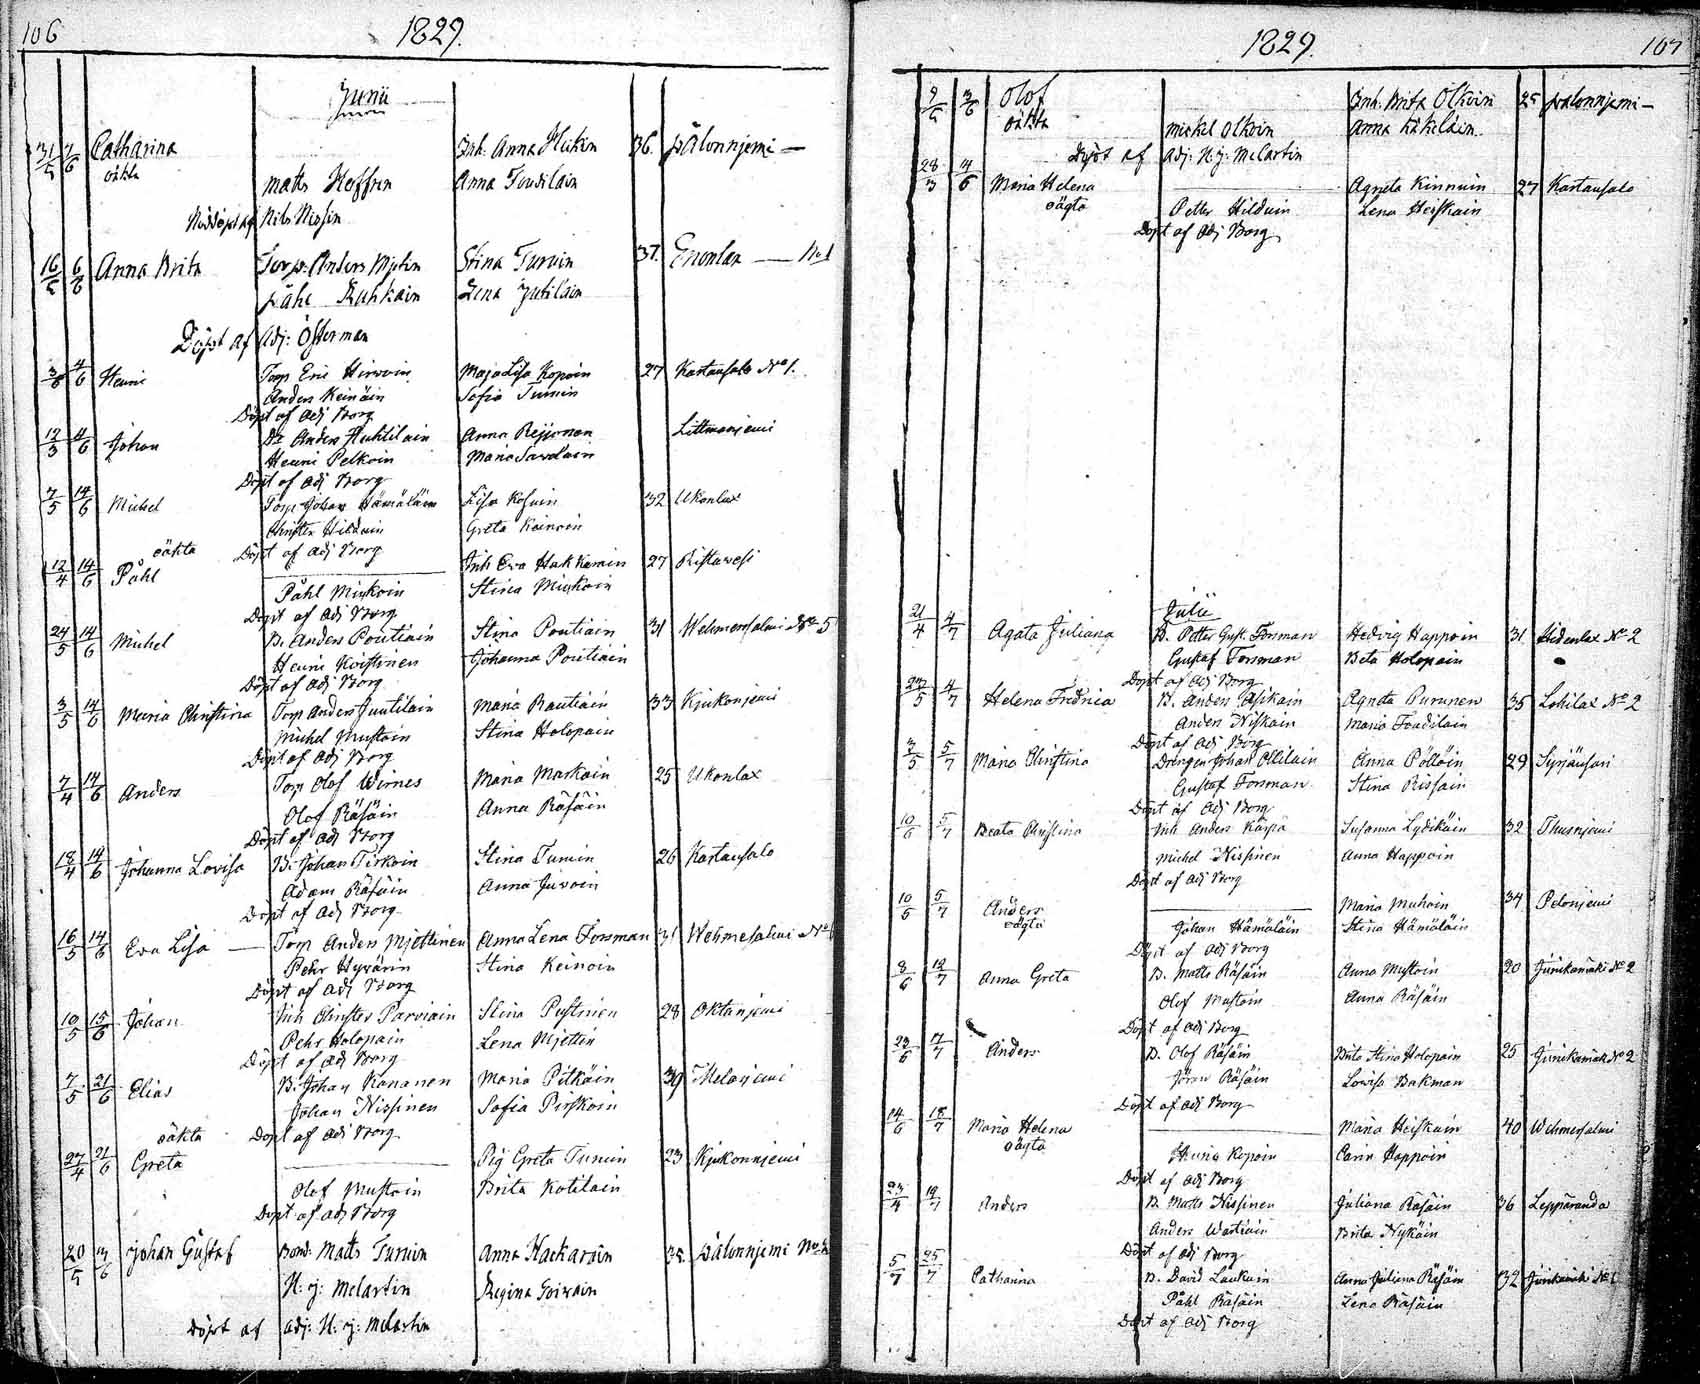 106
1829.
Junii
31/5 7/6 Catharina Inh. Anna Heiken 36. Pälonnjemi —
oäkta Matts Hoffren Anna Toudilain
Nöddöpt af Nils Nissin
16/5 6/6 Anna Brita Torp. Anders Mjetin Stina Turuin 37. Enonlax — No 1
Påhl Ruhkain Lena Jutilain
Döpt af Adj: Österman
3/6 4/6 Henric Torp Eric Hirwoin Maja Lisa Kopoin 27 Kartausalo No 1.
Anders Keinäin Sofia Tumin
Döpt af Adj Borg
12/3 4/6 Johan Anders Huhtilain Anna Reijonen Littmanjemi
Henric Pelkoin Maria Savolain
Döpt af Adj Borg
7/5 14/6 Michel Torp Johan Hämäläin Lisa Kosuin 32 Ukonlax
Christer Hilduin Greta Keinoin
oäkta Döpt af Adj Borg
12/4 14/6 Påhl Inh Eva Hakkarain 27 Ristawesi
Påhl Miskoin Stina Miskoin
Döpt af Adj Borg
24/5 14/6 Michel B. Anders Poutiain Stina Poutiain 31 Wehmersalmi No 5
Henric Koistinen Johanna Poutiain
Döpt af Adj Borg
3/5 14/6 Maria Christina Torp Anders Juutilain Maria Rautiain 33 Kjukonjemi
Michel Mustoin Stina Holopain
Döpt af Adj Borg
7/4 14/6 Anders Torp Olof Wirnes Maria Markain 25 Ukonlax
Olof Räsäin Anna Räsäin
Döpt af Adj Borg
18/4 14/6 Johanna Lovisa B. Johan Tirkoin Stina Tumin 26 Kartausalo
Adam Räsäin Anna Juvoin
Döpt af Adj Borg
16/5 14/6 Eva Lisa — Torp Anders Mjettinen Anna Lena Forsman 31 Wehmersalmi No
Pehr Hyvärin Stina Keinoin
Döpt af Adj Borg
10/5 15/6 Johan Inh Christer Parviain Stina Pustinen 28 Oktanjemi
Pehr Holopain Lena Mjettin
Döpt af Adj Borg
7/5 21/6 Elias B. Johan Kananen Maria Pitkäin 39 Melanjemi
Johan Nissinen Sofia Pirskoin
oäkta Döpt af Adj Borg
27/4 21/6 Greta Pig Greta Tumin 23 Kjukonnjemi
Olof Mustoin Brita Kotilain
Döpt af Adj Borg
20/5 13/6 Johan Gustaf Bond. Matts Turuin Anna Hackarain 35. Pälonnjemi No 2
H. J: Melartin Regina Toivain
Döpt af Adj: H: J: Melartin
1829.
107
9/5 3/6 Olof Inh. Brita Olkoin 25 Pälonnjemi —
oäkta Michel Olkoin Anna Käkeläin.
Döpt af Adj: H: J: Melartin
28/3 4/6 Maria Helena Agneta Kinnuin 27 Kartausalo
oägta Petter Hilduin Lena Heiskain
Döpt af Adj Borg
Julii
21/4 4/7 Agata Juliana B. Petter Gust. Forsman Hedvig Happoin 31 Hidenlax No 2
Gustaf Forsman Beta Holopain
Döpt af Adj Borg
27/5 4/7 Helena Fredrica B. Anders Asikain Agneta Purunen 35 Lohilax No 2
Anders Niskain Maria Toudilain
Döpt af Adj Borg
3/5 5/7 Maria Christina Drengen Johan Ollilain Anna Pölläin 29 Syrjänsari
Gustaf Forsman Stina Rissain
Döpt af Adj Borg
10/6 5/7 Beata Christina Inh Anders Karpa Susanna Lydikäin 32 Thusnjemi
Michel Nissinen Anna Happoin
Döpt af Adj Borg
10/5 5/7 Anders Maria Muhoin 34 Pelonjemi
oägta Johan Hämäläin Stina Hämäläin
Döpt af Adj Borg
8/6 12/7 Anna Greta B. Matts Räsäin Anna Mustoin 20 Junikamäki No 2
Olof Mustoin Anna Räsäin
Döpt af Adj Borg
23/6 17/7 Anders B. Olof Räsäin Brita Stina Holopain 25 Junikamäki No 2
Jöran Räsäin Lovisa Bakman
Döpt af Adj Borg
14/6 18/7 Maria Helena Maria Heiskain 40 Wehmersalmi
oägta Kopoin Carin Happoin
Döpt af Adj Borg
23/4 19/7 Anders B. Matts Nissinen Juliana Räsäin 36 Lepparanda
Anders Wartiain Brita Nykäin
Döpt af Adj Borg
5/7 25/7 Catharina B. David Laukain Anna Juliana Räsäin 32 Junikamäki No 1
Påhl Räsäin Lena Räsäin
Döpt af Adj Borg